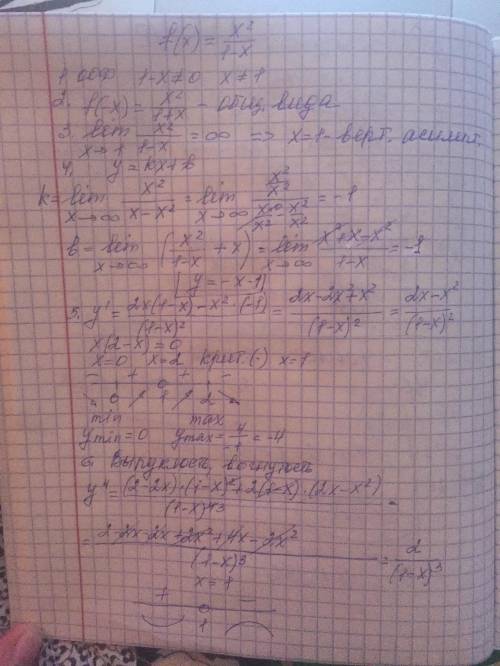 f(x) = x²/(1-x)
1. ООФ 1-x≠0 x≠1
2. f(-x) = x²/(1+x) - общ. вида
3. lim x→1 x²/(1-x) = ∞ => x=1 - верт. асимпт.
4. y = kx+b
k = lim x→∞ x²/(x-x²) = lim x→∞ (x²/x²)/(x/x² - x²/x²) = -1
b = lim x→∞ (x²/(1-x) + x) = lim x→∞ (x²+x-x²)/(1-x) = -1
y = -x-1
5. y' = (2x(1-x) - x²·(-1))/(1-x)² = (2x-2x²+x²)/(1-x)² = (2x-x²)/(1-x)²
x(2-x)=0
x=0 x=2 крит.(·) x=1
- + + -
0 1 2
min max
ymin=0 ymax = 4/-1 = -4
6 Выпуклость, вогнутость
y'' = ((2-2x)·(1-x)²+2(1-x)·(2x-x²))/(1-x)⁴³ =
= (2-2x-2x+2x²+4x-2x²)/(1-x)³ = 2/(1-x)³
x = 1
+ -
1